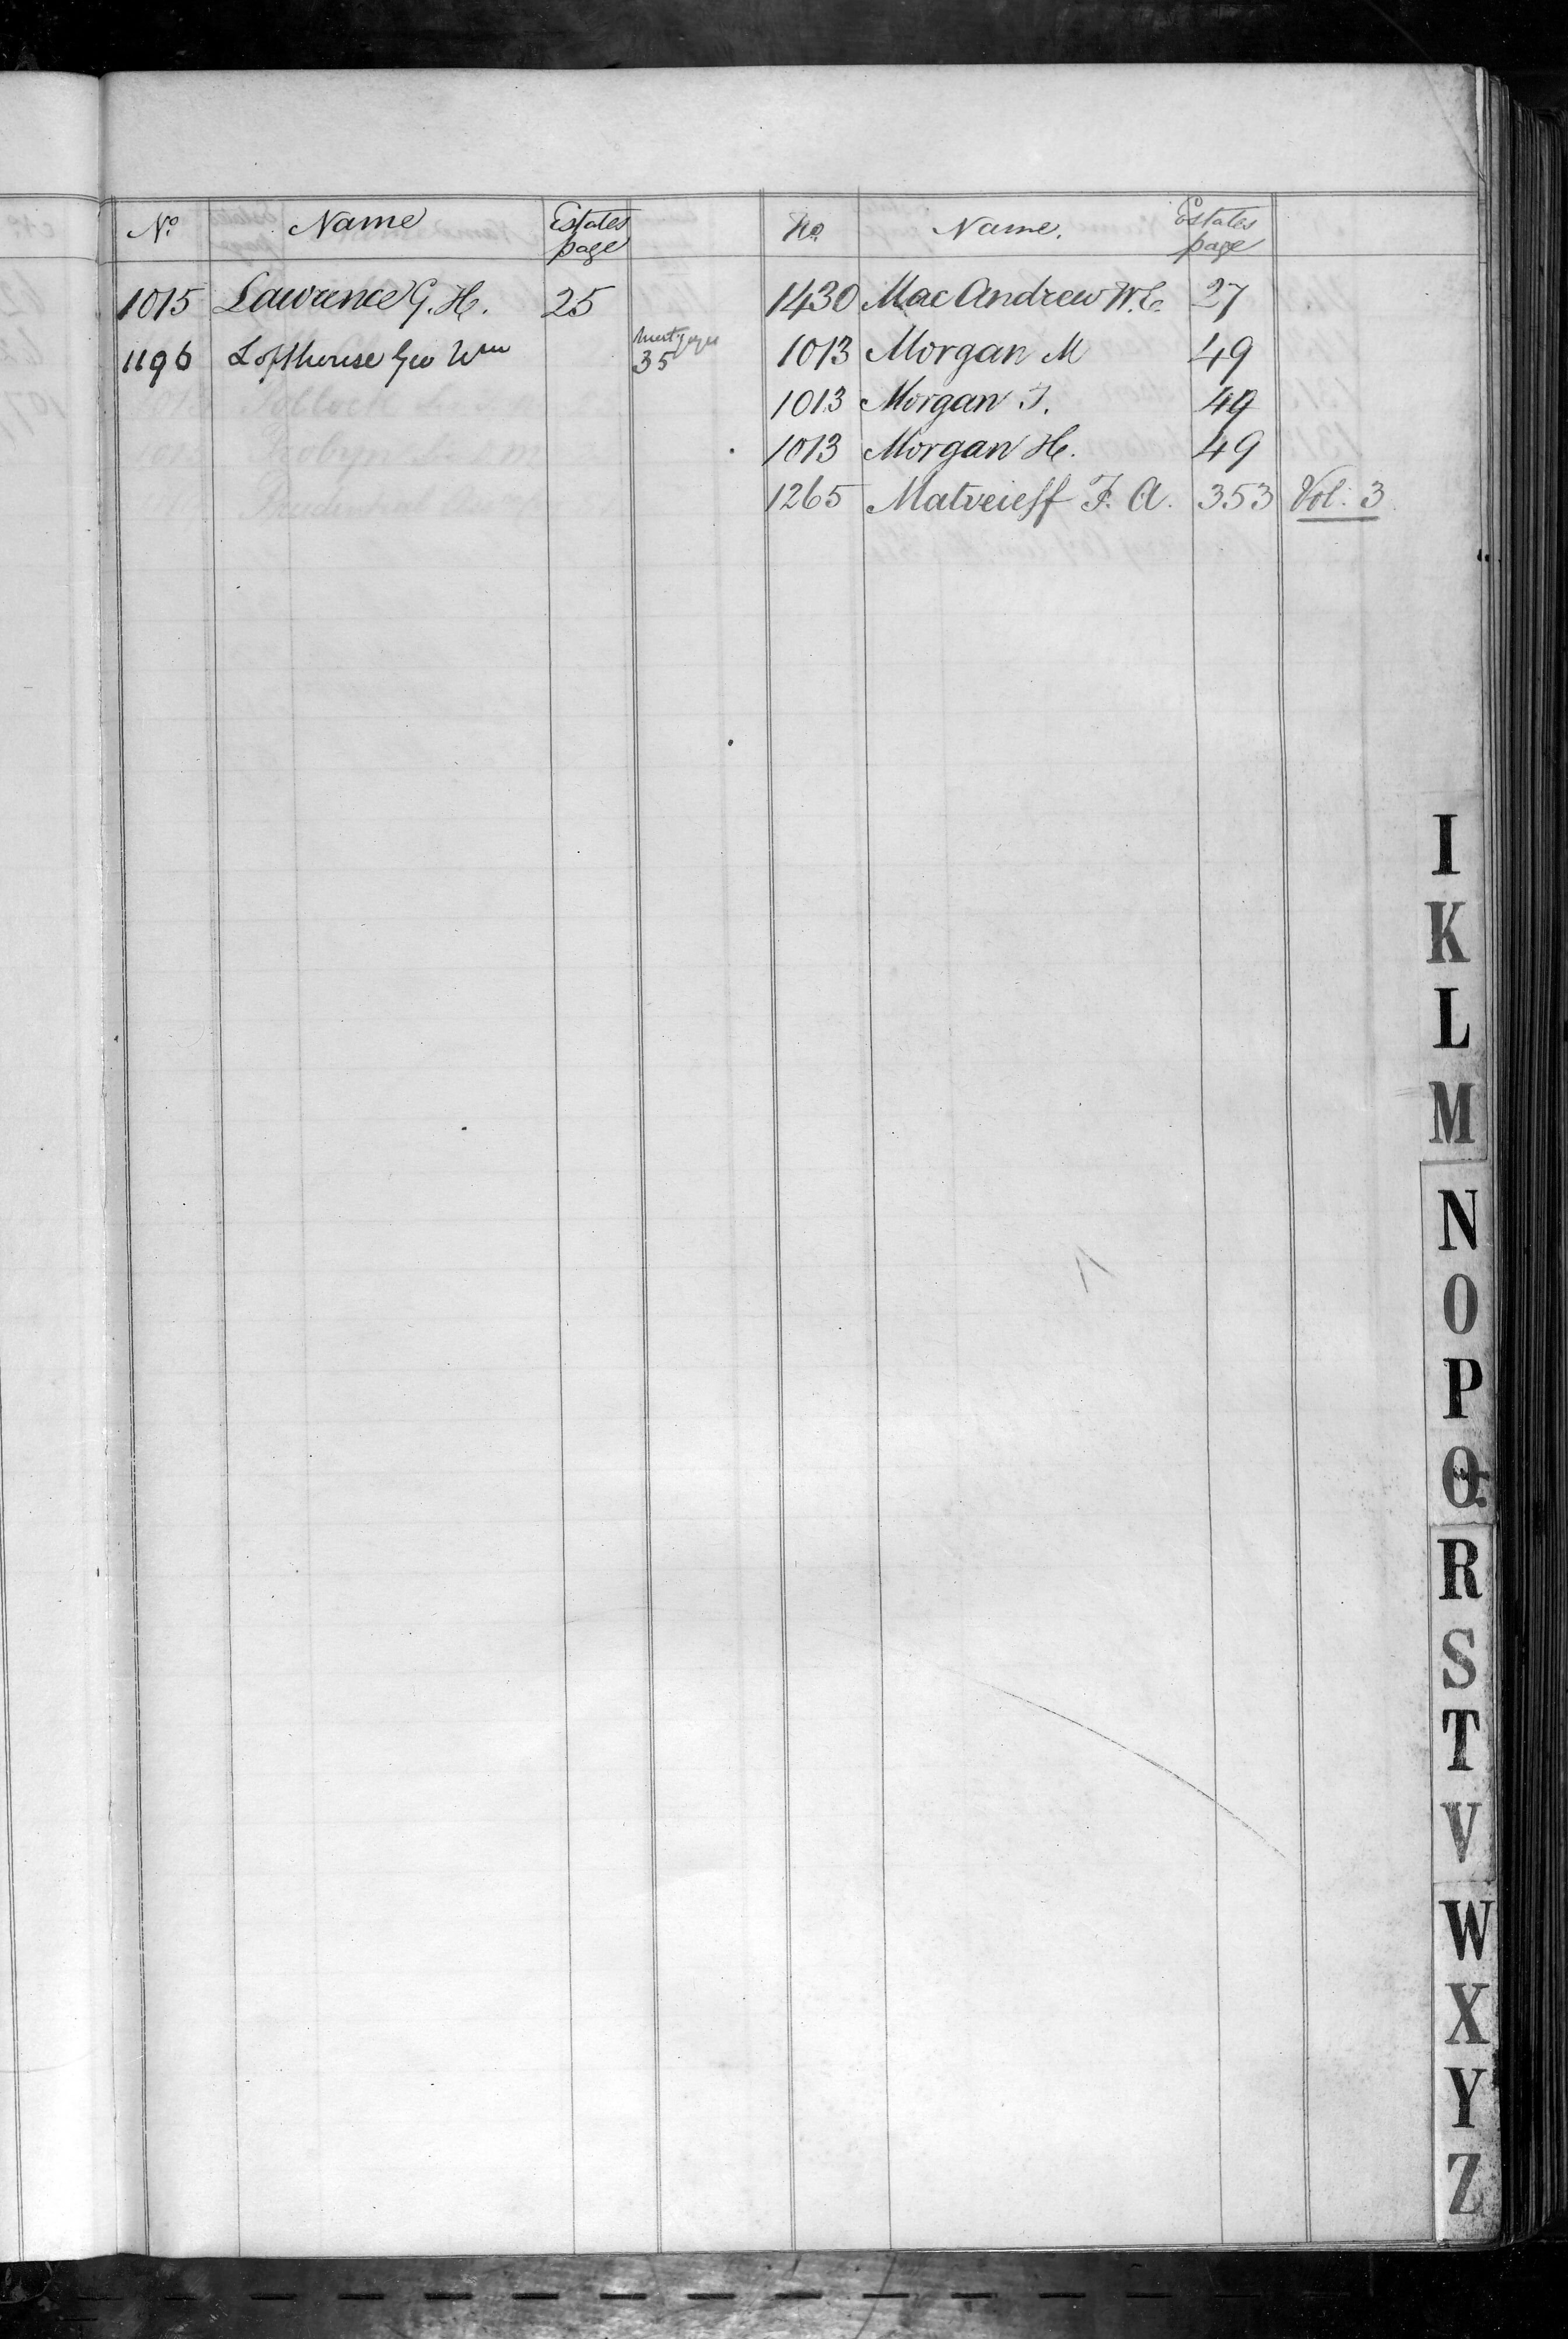 No. Name Estates page
1015 Lawrence G. H. 25
1196 Lofthouse Geo Wm Mortgages 35
No. Name. Estates page
1430 Mac Andrew W. C. 27
1013 Morgan M 49
1013 Morgan J. 49
1013 Morgan H. 49
1265 Matveieff F. A. 353 Vol. 3
I
K
L
M
N
O
P
Q
R
S
T
V
W
X
Y
Z